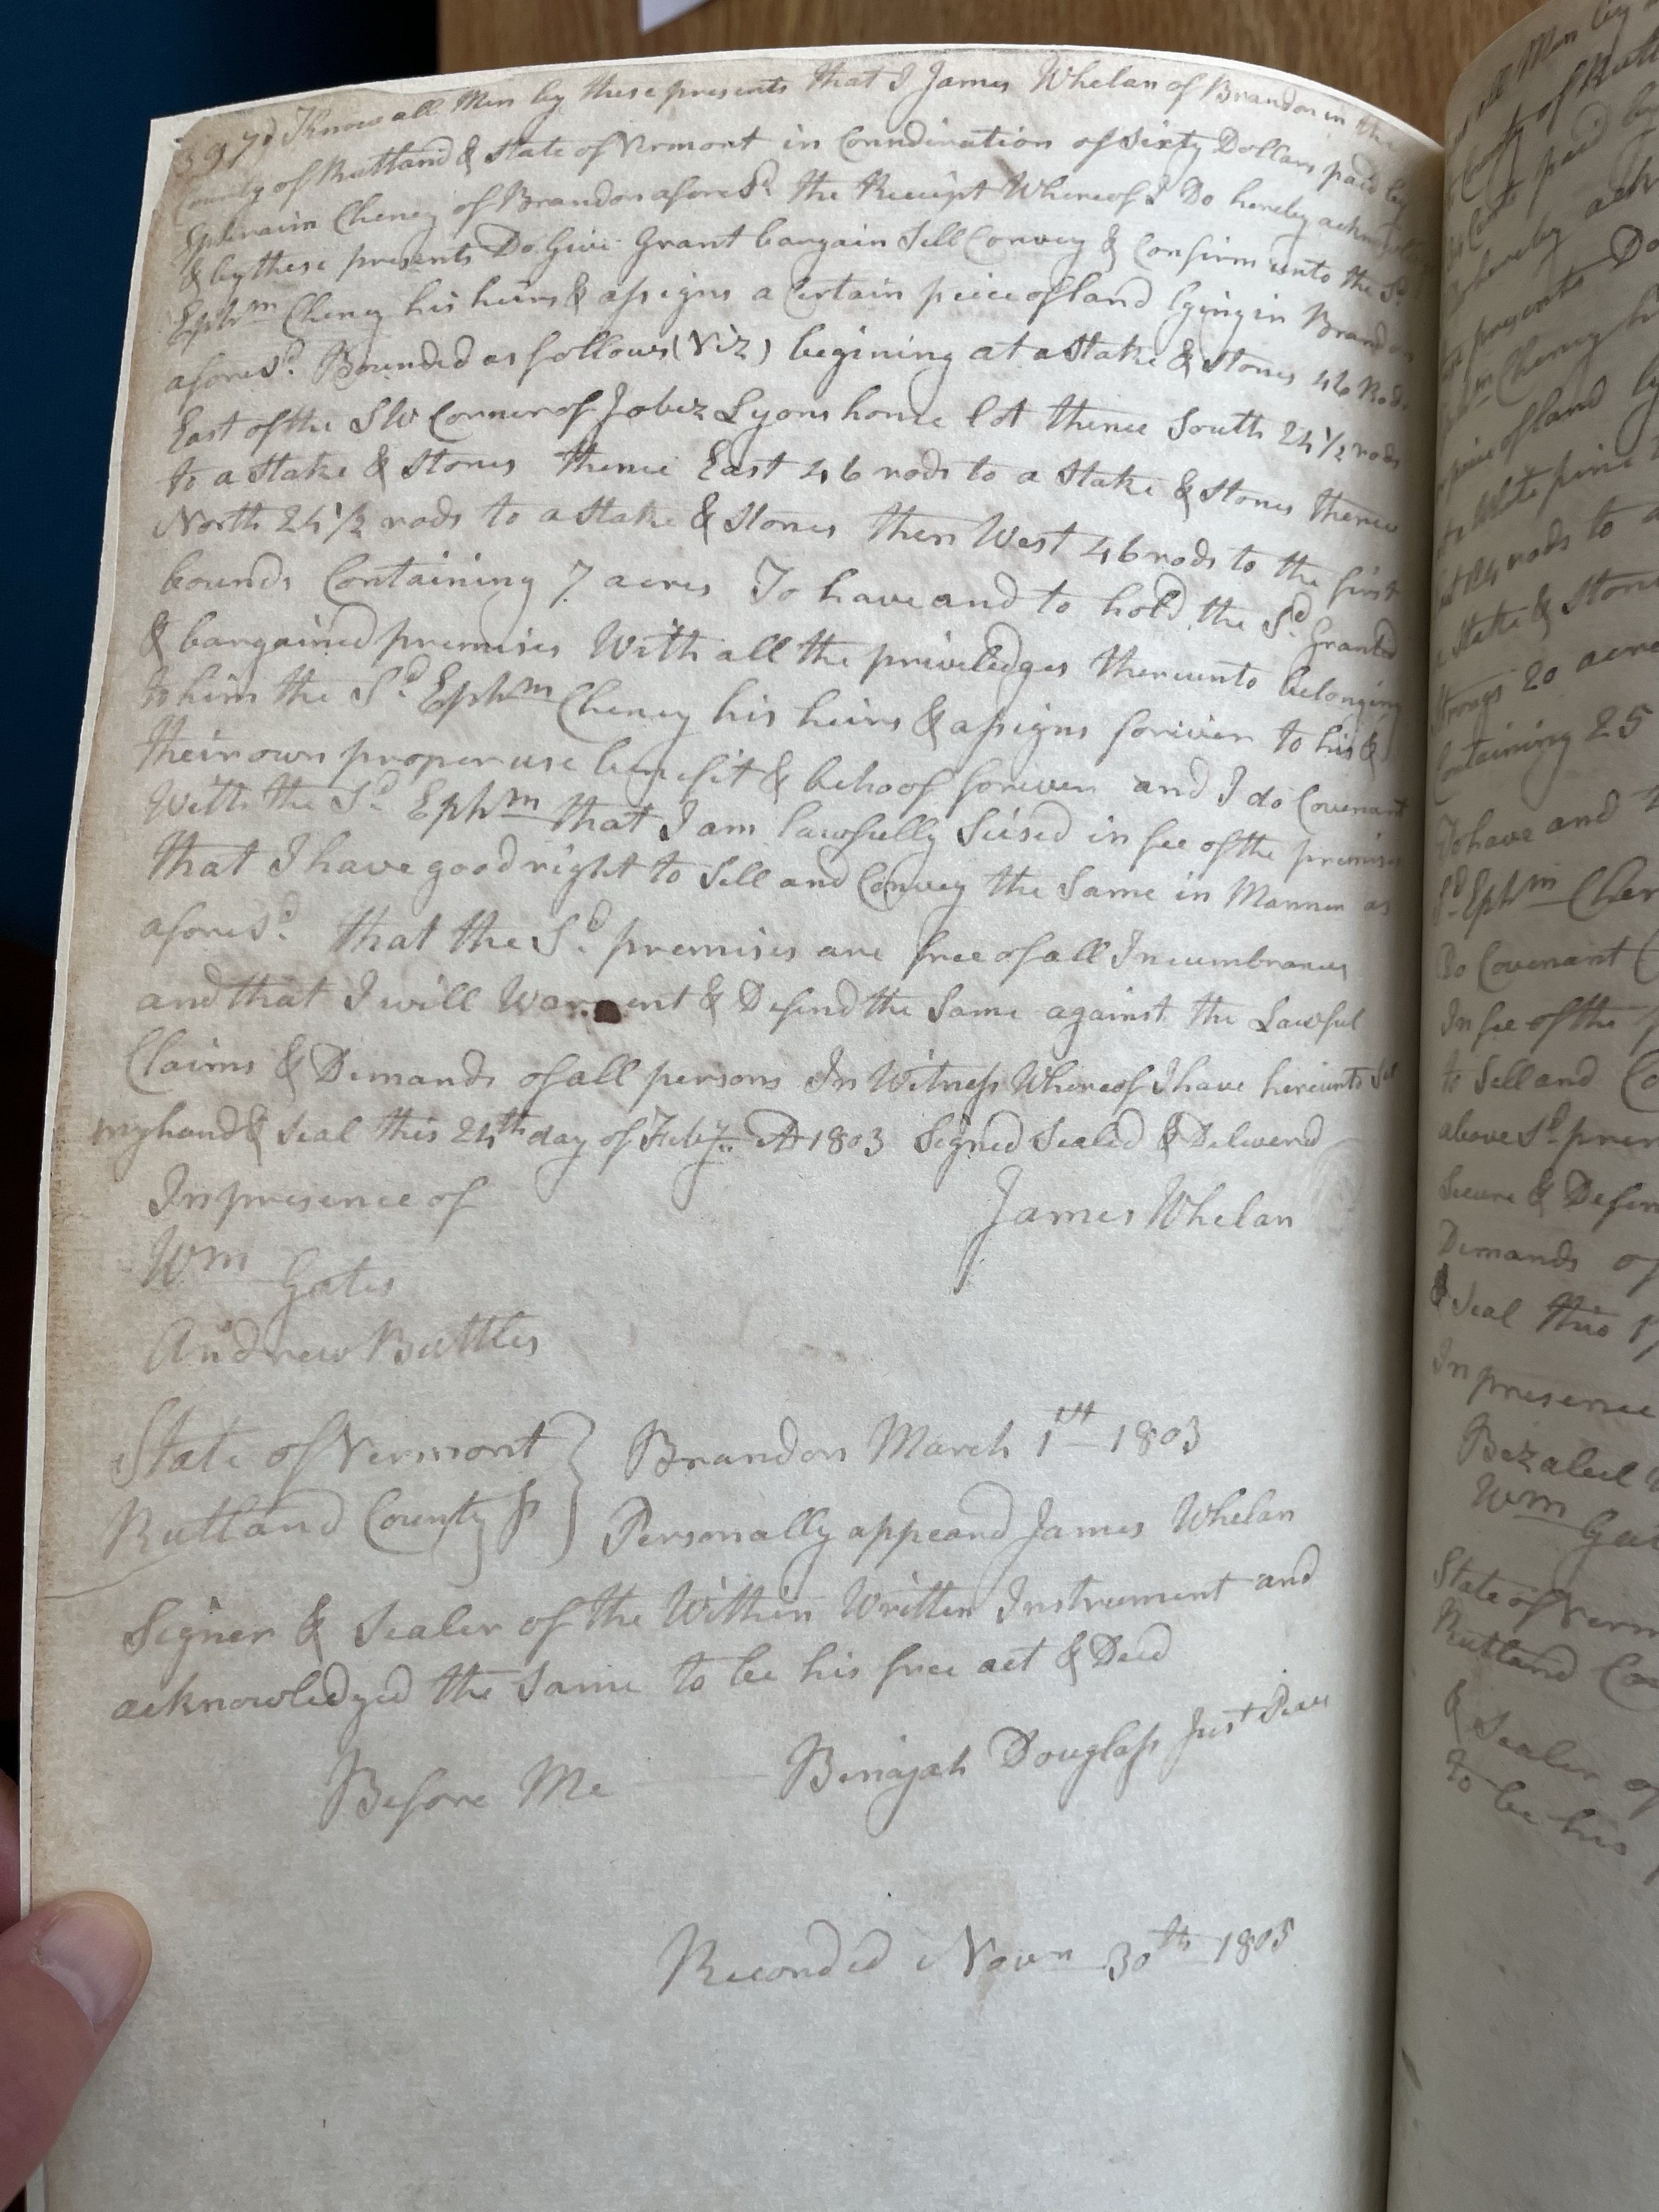 397) Know all Men by these presents that I James Whelan of Brandon in the
County of Rutland & State of Vermont in Considiration of Sixty Dollars paid by
Ephraim Cheney of Brandon afores.d the Receipt Whereof I Do hereby acknowledge
& by these presents Do Give Grant bargain Sell Convey & Confirm unto the Sd
Ephm Cheney his heirs & assigns a Certain peice of land lying in Brandon
afores.d Bounded as follows (Viz) begining at a Stake & Stones 46 Rods
East of the SW Corner of Jabez Lyons home lot thence South 24 1/2 rods
to a Stake & Stones thence East 46 rods to a Stake & Stones thence
North 24 1/2 rods to a Stake & Stones then West 46 rods to the first
bounds Containing 7 acres To have and to hold the S.d Granted
& bargained premises With all the priviledges thereunto belonging
to him the S.d Ephm Cheney his heirs & assigns foriver to his &
their own proper use benefit & behoof foriver and I do Covenant
With the S.d Ephm that I am lawfully Seised in fee of the premises
that I have good right to Sell and Convey the Same in Manner as
afores.d that the S.d premises are free of all Incumbrances
and that I will Warrent & Defend the Same against the Lawful
Claims & Demands of all persons In Witness Whereof I have hereunto Set
my hand & Seal this 24th day of Feby. AD 1803 Signed Sealed & Deliverd
In presence of
James Whelan
Wm Gates
Andrew Buttles
State of Vermont } Brandon March 1st 1803
Rutland County Ss } Personally appeard James Whelan
Signer & Sealer of the Within Written Instrument and
acknowledged the Same to be his free act & Deed
Before Me Binajah Douglass Just Peace
Recorded Novr 30th 1805